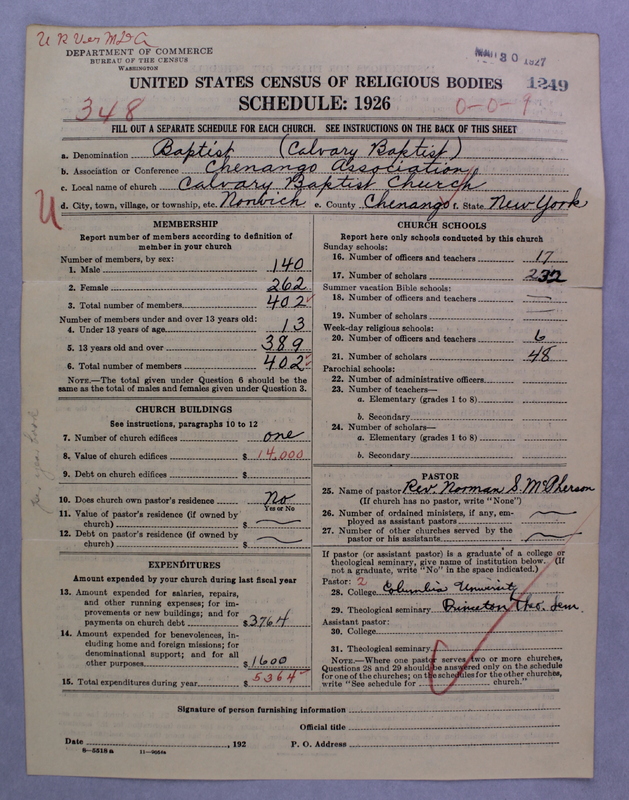 DEPARTMENT OF COMMERCE
BUREAU OF THE CENSUS
WASHINGTON
30 1927
1249
UNITED STATES CENSUS OF RELIGIOUS BODIES
SCHEDULE: 1926
348
0-0-9
FILL OUT A SEPARATE SCHEDULE FOR EACH CHURCH. SEE INSTRUCTIONS ON THE BACK OF THIS SHEET
a. Denomination Baptist (Calvary Baptist)
b. Association or Conference Chenango Association
c. Local name of church Calvary Baptist Church
U
d. City, town, village, or township, etc. Norwich e. County Chenango f. State New York
MEMBERSHIP
Report number of members according to definition of
member in your church
Number of members, by sex:
1. Male 140
2. Female 262
3. Total number of members 402
Number of members under and over 13 years old:
4. Under 13 years of age 13
5. 13 years old and over 389
6. Total number of members 402
NOTE.—The total given under Question 6 should be
the same as the total of males and females given under Question 3.
CHURCH BUILDINGS
See instructions, paragraphs 10 to 12
7. Number of church edifices one
8. Value of church edifices $ 14,000
9. Debt on church edifices $
10. Does church own pastor's residence No
Yes or No
11. Value of pastor's residence (if owned by
church) $
12. Debt on pastor's residence (if owned by
church) $
EXPENDITURES
Amount expended by your church during last fiscal year
13. Amount expended for salaries, repairs,
and other running expenses; for im-
provements or new buildings; and for
payments on church debt $ 3764
14. Amount expended for benevolences, in-
cluding home and foreign missions; for
denominational support; and for all
other purposes $ 1600
15. Total expenditures during year $ 5364
CHURCH SCHOOLS
Report here only schools conducted by this church
Sunday schools:
16. Number of officers and teachers 17
17. Number of scholars 232
Summer vacation Bible schools:
18. Number of officers and teachers —
19. Number of scholars —
Week-day religious schools:
20. Number of officers and teachers 6
21. Number of scholars 48
Parochial schools:
22. Number of administrative officers
23. Number of teachers—
a. Elementary (grades 1 to 8)
b. Secondary
24. Number of scholars—
a. Elementary (grades 1 to 8)
b. Secondary
PASTOR
25. Name of pastor Rev. Norman S. McPherson
(If church has no pastor, write "None")
26. Number of ordained ministers, if any, em-
ployed as assistant pastors
27. Number of other churches served by the
pastor or his assistants
If pastor (or assistant pastor) is a graduate of a college or
theological seminary, give name of institution below. (If
not a graduate, write "No" in the space indicated.)
Pastor: 2
28. College Columbia University
29. Theological seminary Princeton Theo. Sem.
Assistant pastor:
30. College
31. Theological seminary
NOTE.—Where one pastor serves two or more churches,
Questions 28 and 29 should be answered only on the schedule
for one of the churches; on the schedules for the other churches,
write "See schedule for church."
Signature of person furnishing information
Official title
Date , 192 P. O. Address
8—5518a 11—9051a